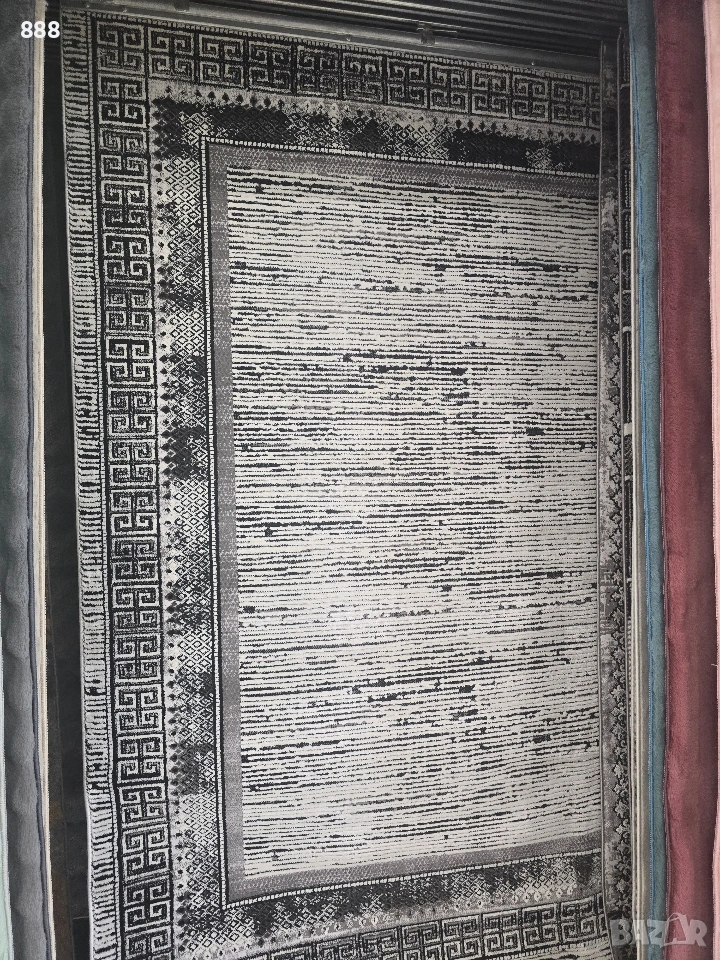 888
BAZAR